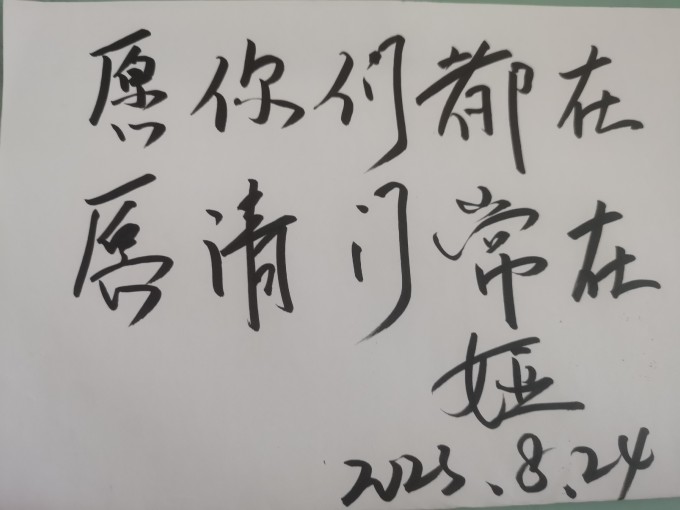 愿你们都在
清门常在
娅
2025.8.24